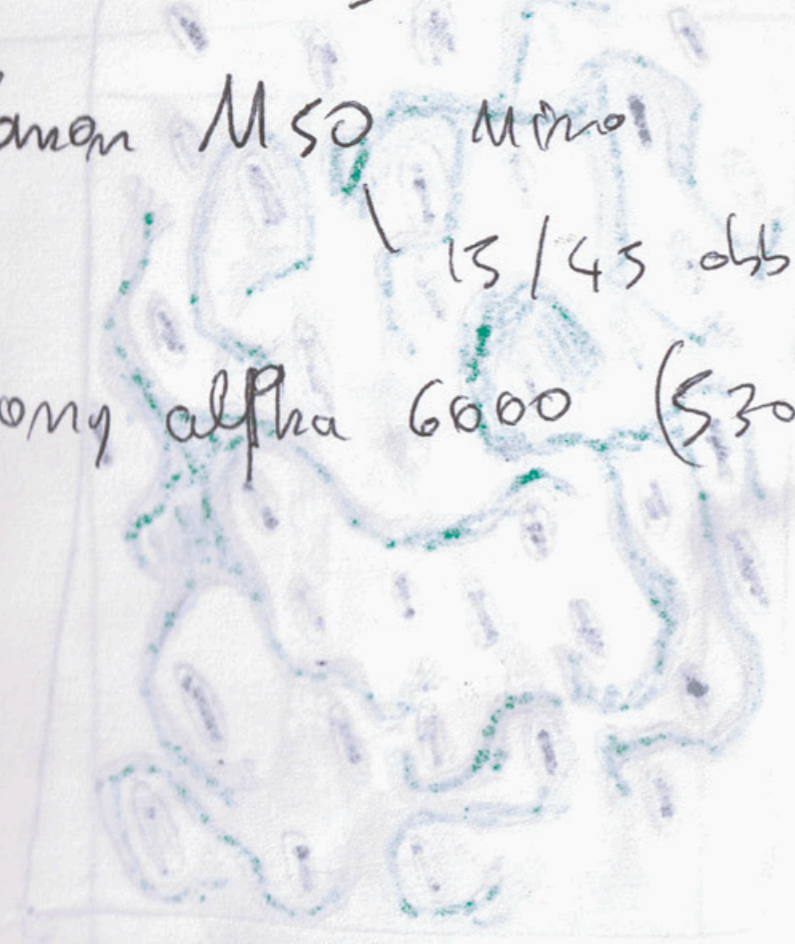 anon M50 Mino
15/45 obb
ony alpha 6000 (530